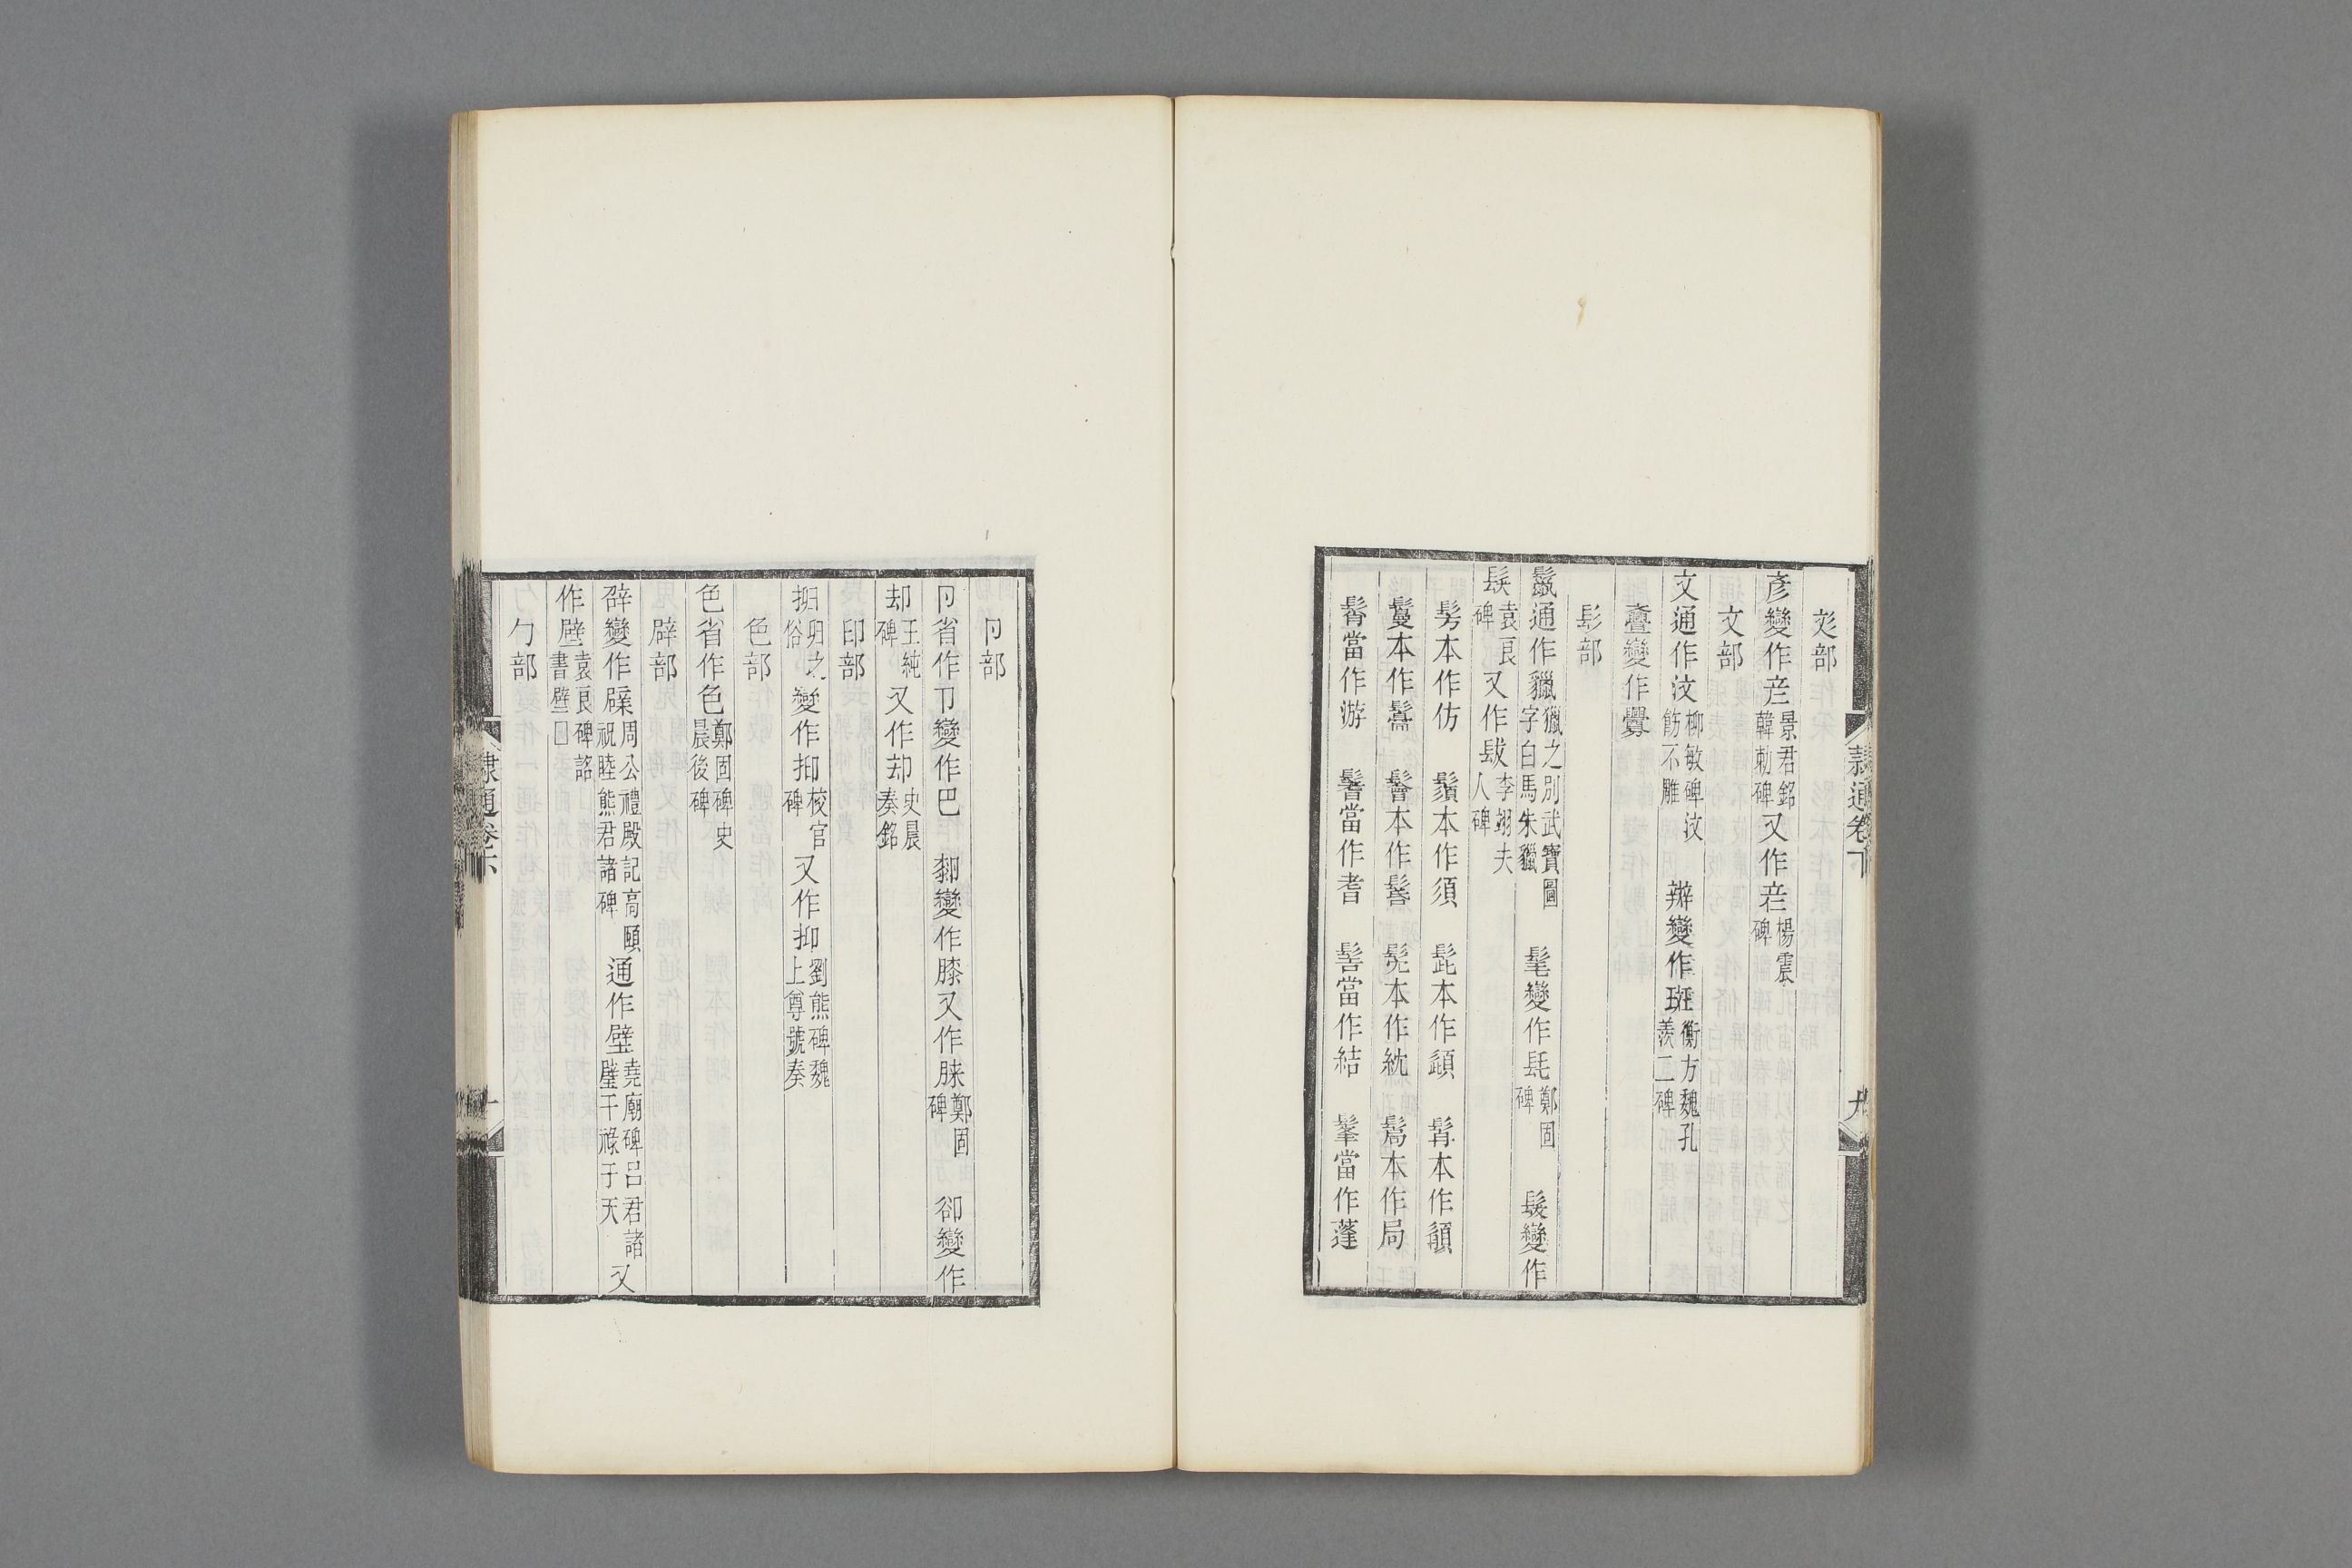 彣部
彥變作彦景君銘韓勑碑又作彦楊震碑
文部
文通作汶柳敏碑汶飭不雕 辬變作斑衡方魏孔羨二碑
變作舋
髟部
鬣通作玁玁之別武寶圖字白馬朱玁 髦變作髦鄭固碑 髮變作
碑袁良又作李翊夫人碑
髣本作仿 鬚本作須 髭本作頾 髯本作
鬘本作 鬠本作 髧本作紞 作局
當作游 鬐當作耆 髻當作結 髼當作蓬
卩部
卩省作卩變作巴 厀變作膝又作脒鄭固碑 卻變作
却王純碑又作却史晨奏銘
印部
之俗變作抑校官碑又作抑劉熊碑魏上尊號奏
色部
色省作色鄭固碑史晨後碑
辟部
變作周公禮殿記高頤祝睦熊君諸碑通作璧堯廟碑呂君諸璧干祿于天又
作壁袁良碑詔書壁囗
勹部
隸通卷下
九
隸通卷下
十